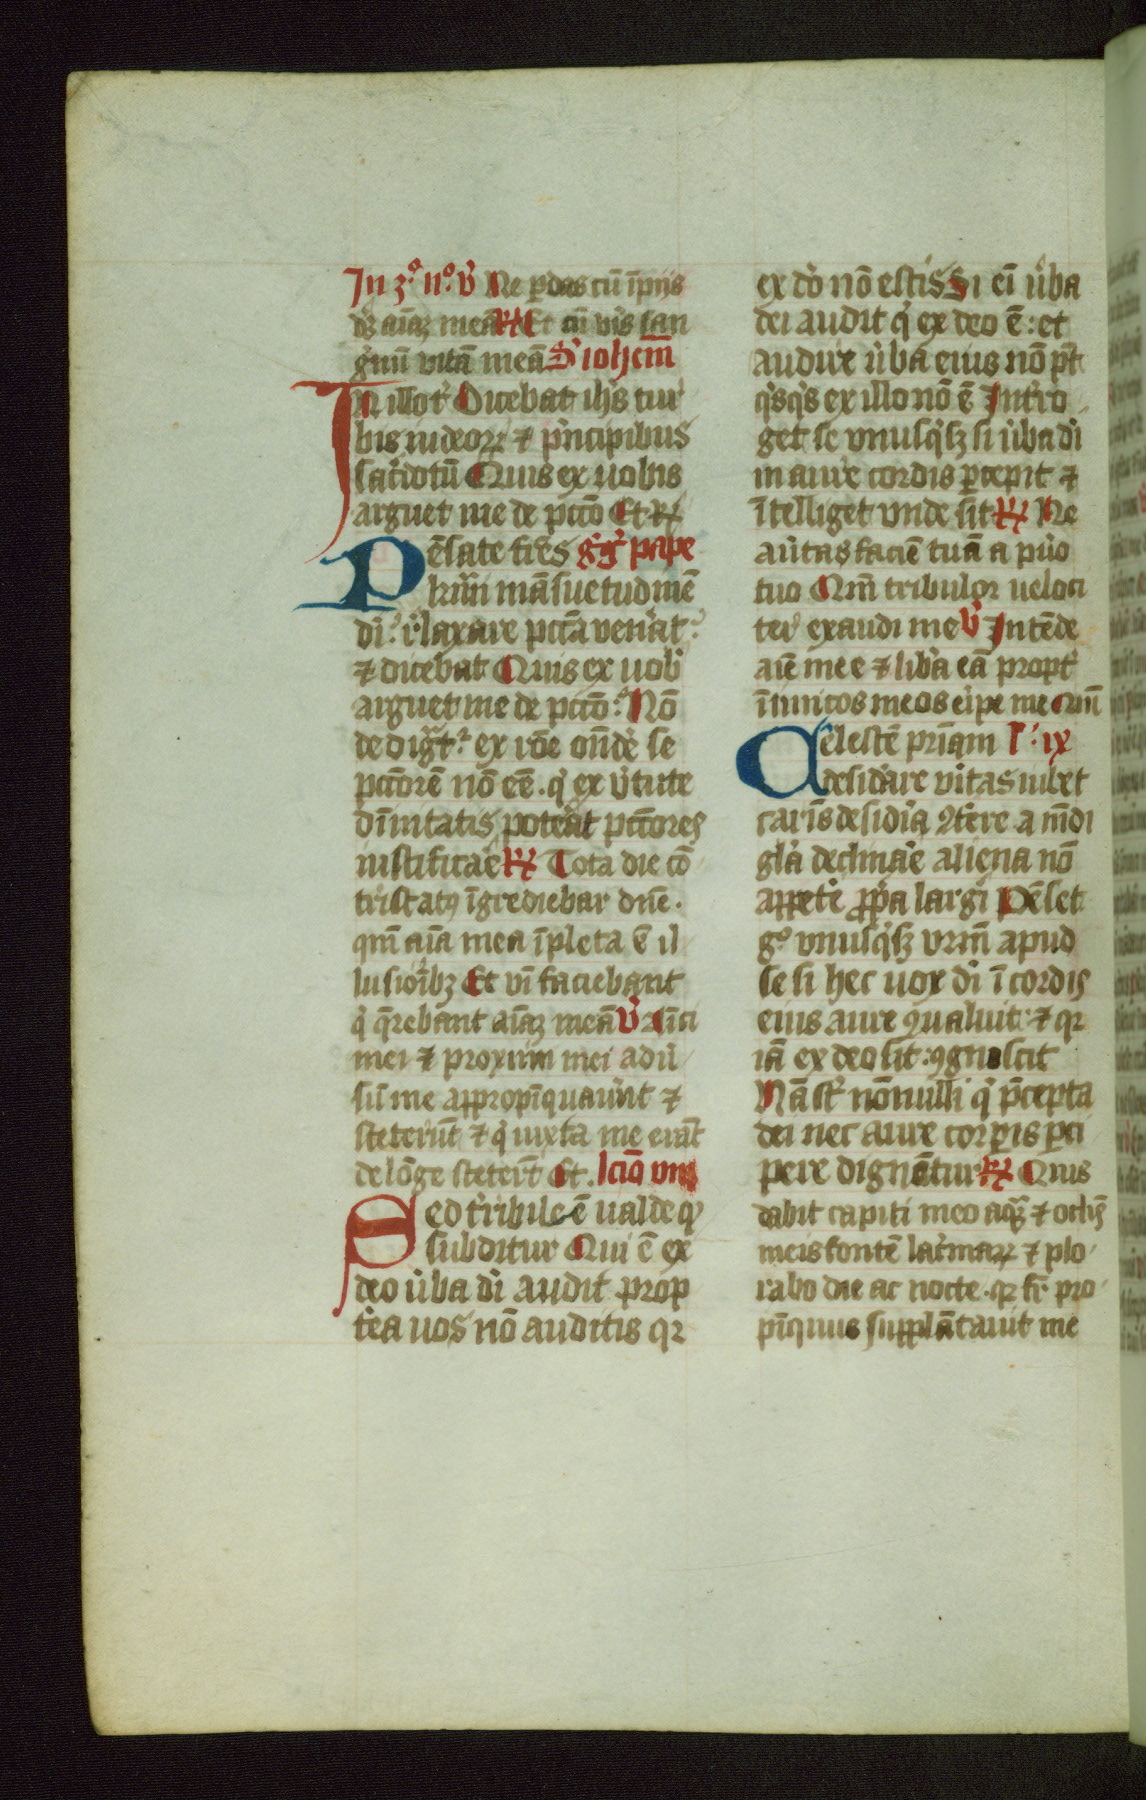 In 3º nº v̾ Ne p̱das cū īpiis
dꝫ aīaꝫ meā ℟ Et cū vi̾s san
g̾nū vitā meā S' ioh̄em
In illo t̾ Dicebat ih̄s tur
bis iudeoꝝ ⁊ p̾ncipibus
sac̾dotū Quis ex uobis
arguet me de pccō Et ℟
Pēsate fr̄es g̾g̾ pape
kr̄mi māsuetudinē
di̾. r̾laxare pccā ven̾at.
⁊ dicebat Quis ex uob̾
arguet me de pccō. Nō
dedig̾t̾ ex rōe ōnde̾ se
pccōrē nō eē. q̾ ex v̾tute
diu̾nitatis, pote̾at pccōres
iustificar̾e ℟ Tota die cō
tristatꝰ īgrediebar dn̄e.
qm̄ aīa mea īpleta ē il
lusioībꝫ Et vī faciebant
q̾ q̄rebant aīaꝫ meā v̾ Amici
mei ⁊ proximi mei adu̾
su̾ me appropīquaue̾t ⁊
steterūt ⁊ q̾ iuxta me erāt
de lōge stete̾rt Et. lcīo viii
Sed t̾ribile ē ualde qꝫ
subditur Qui ē ex
deo u̾ba di̾ audit prop
te̾a uos nō auditis qꝛ
ex do̾ nō estis Si ei̾ u̾ba
dei audit q̾ ex deo ē: et
audire u̾ba eius nō pt̄
q̾sq̾s ex illo nō ē Int̾ro
get se vnusq̾sꝫ si u̾ba di̾
in aure cordis p̱cepit ⁊
ītelliget vnde sit ℟ Ne
au̾tas faciē tuā a pu̾o
tuo Qm̄ tribulor ueloci
ter exaudi me v̾ Intēde
aīe mee ⁊ lib̾a eā propt̾
īimicos meos er̾ipe me Qm̄
Celestē pr̄iam l̾. ix
desidare̾ v̾itas iubet
carīs desidi̾a ꝯt̾ere. a mūdi
gl̾a declinar̾e aliena nō
appete̾ ꝓpa largi̾ Pēset
gͦ vnusq̾sꝫ vrm̄ apud
se si hec uox di̾ ī cordis
eius aure ꝯualuit: ⁊ qꝛ
iā ex deo sit: ꝯgnoscit
Nā st̄ nōnulli q̾ p̄cepta
dei nec aure corp̱is p̱ci
pere dignātur ℟ Quis
dabit capiti meo aq̄ꝫ ⁊ oclīs
meis fontē lac̾maꝝ ⁊ plo
rabo die ac nocte. qꝛ fr̄ pro
pīquus supplātauit me